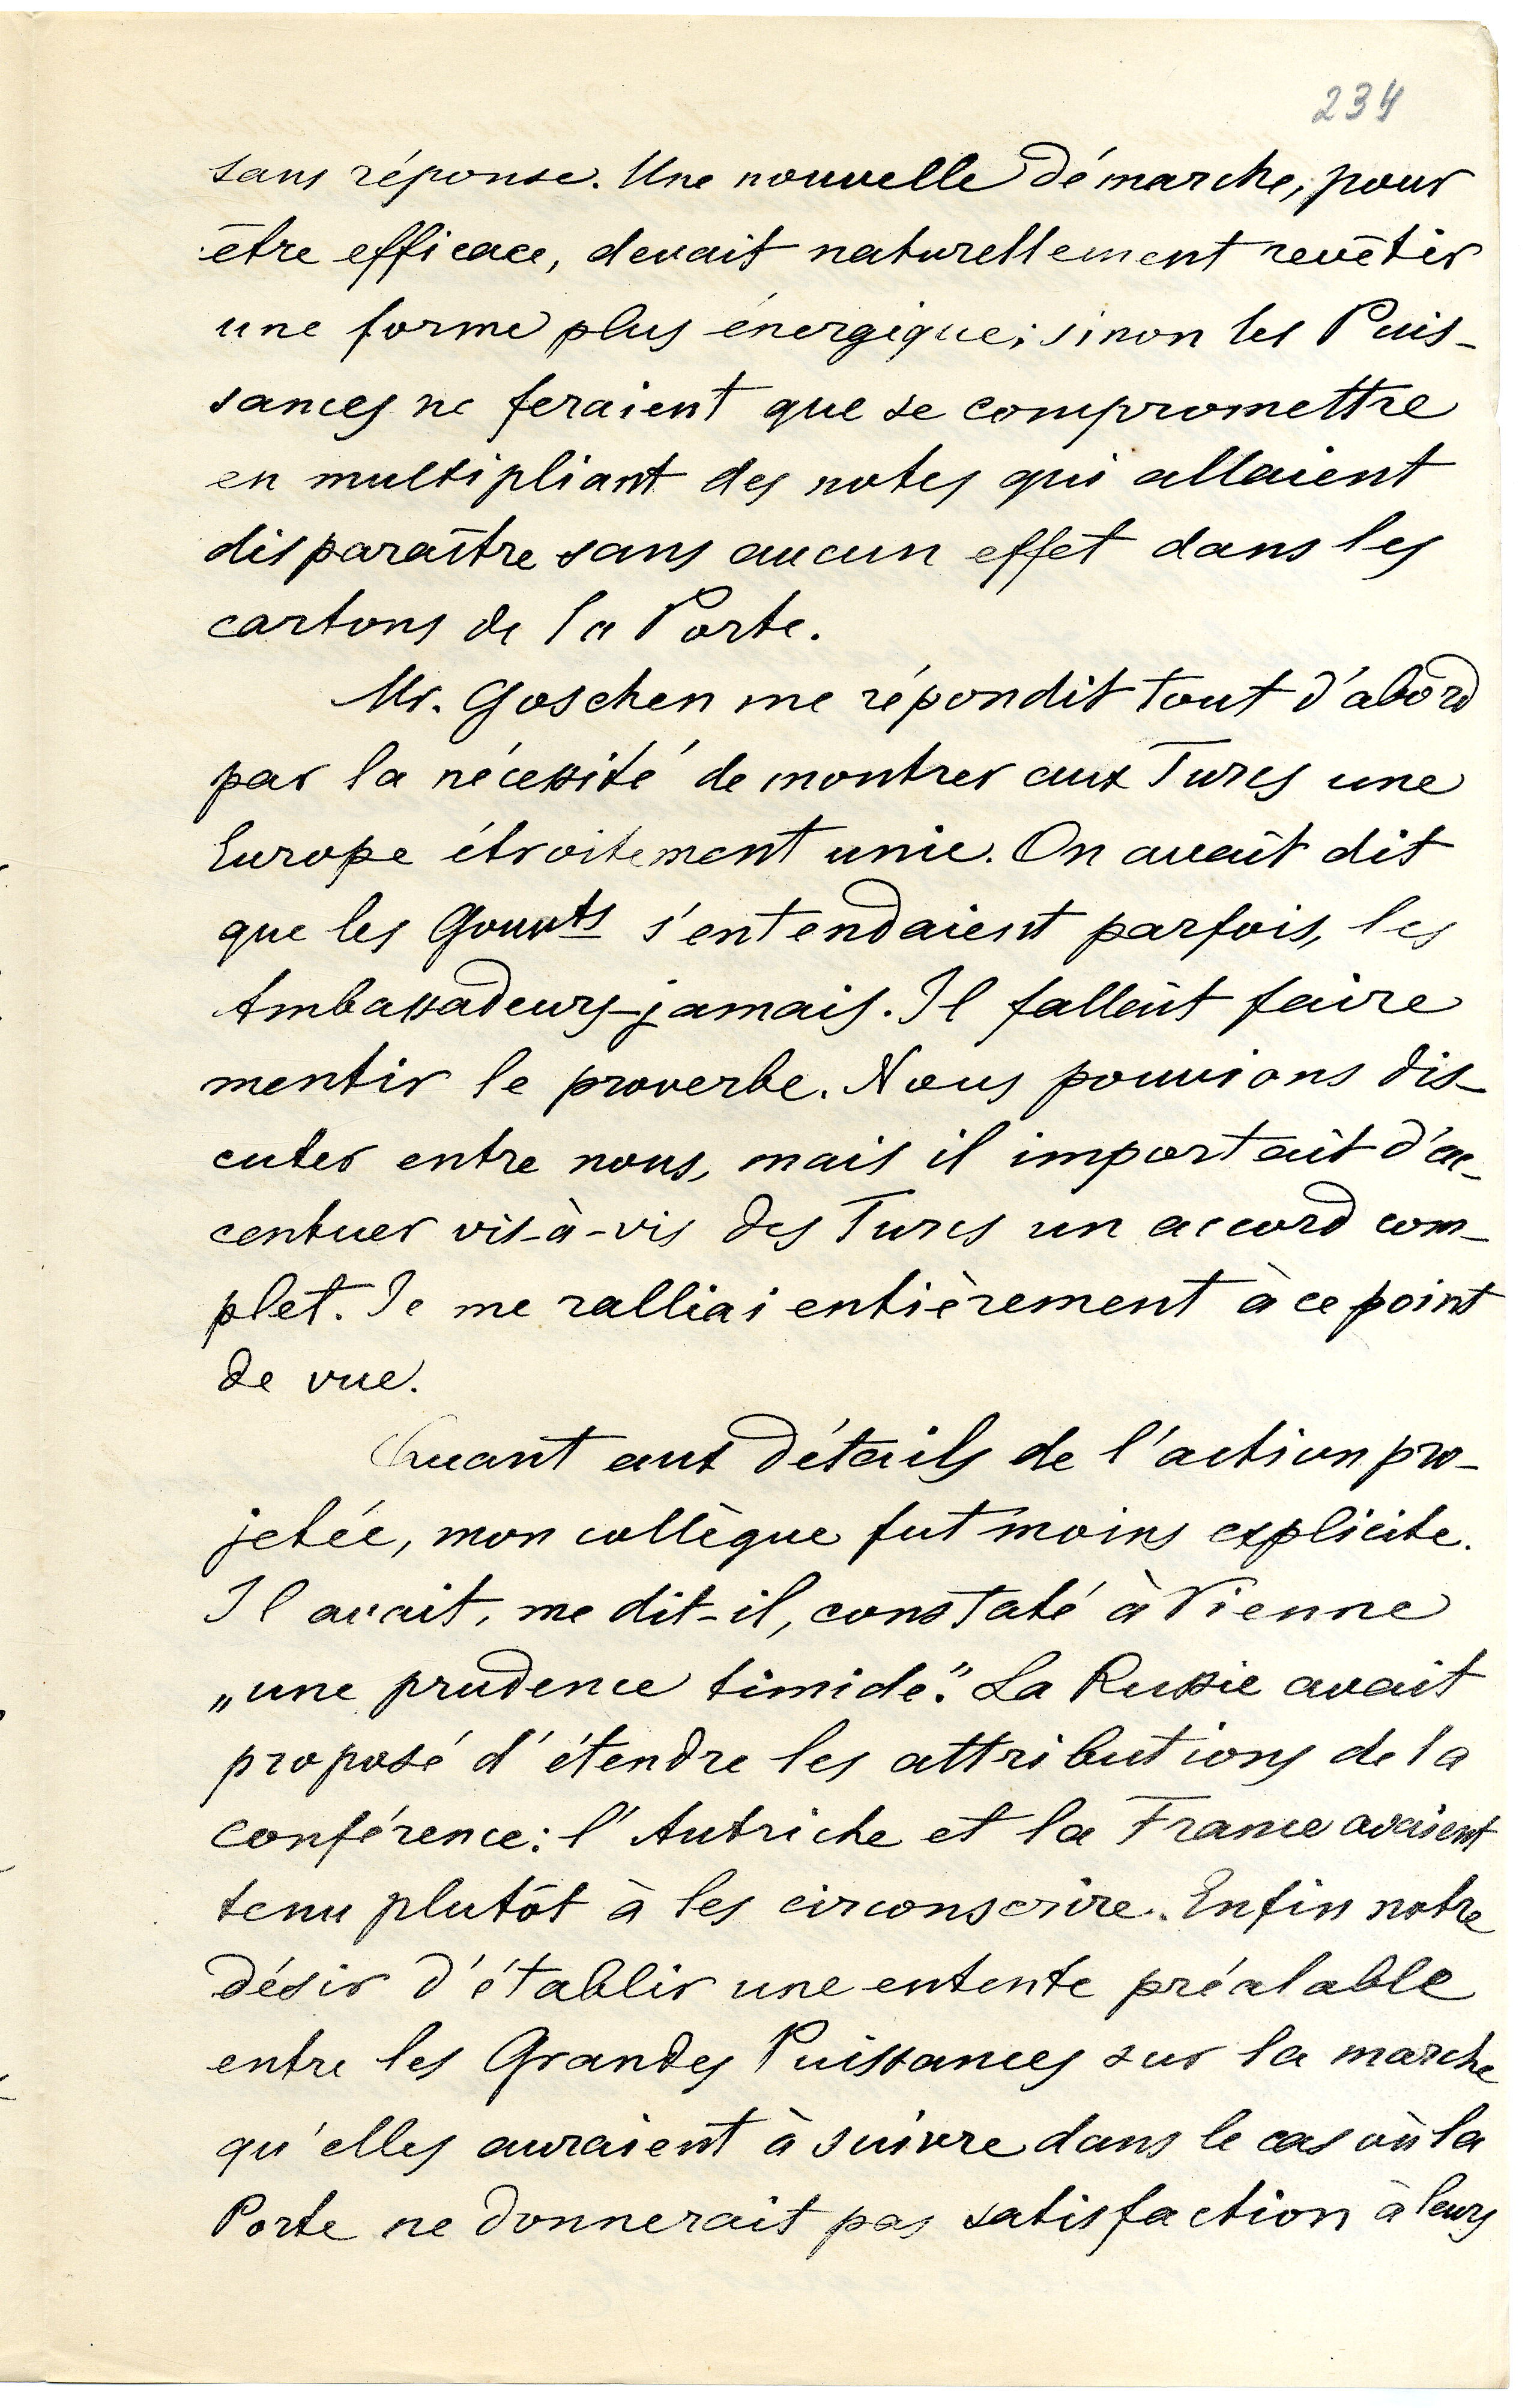 234
sans réponse. Une nouvelle démarche, pour
être efficace, devait naturellement revêtir
une forme plus énergique; sinon les Puis-
sances ne feraient que se compromettre
en multipliant des notes qui allaient
disparaître sans aucun effet dans les
cartons de la Porte.
Mr. Goschen me répondit tout d'abord
par la nécessité de montrer aux Turcs une
Europe étroitement unie. On avait dit
que les Gouvts s'entendaient parfois, les
Ambassadeurs-jamais. Il fallait faire
mentir le proverbe. Nous pouvions dis-
cuter entre nous, mais il importait d'ac-
centuer vis-à-vis des Turcs un accord com-
plet. Je me ralliai entièrement à ce point
de vue.
Quant aux détails de l'action pro-
jetée, mon collègue fut moins explicite.
Il avait, me dit-il, constaté à Vienne
„une prudence timide". La Russie avait
proposé d'étendre les attributions de la
conférence: l'Autriche et la France avaient
tenu plutôt à les circonscrire. Enfin notre
désir d'établir une entente préalable
entre les Grandes Puissances sur la marche
qu'elles auraient à suivre dans le cas où la
Porte ne donnerait pas satisfaction à leurs